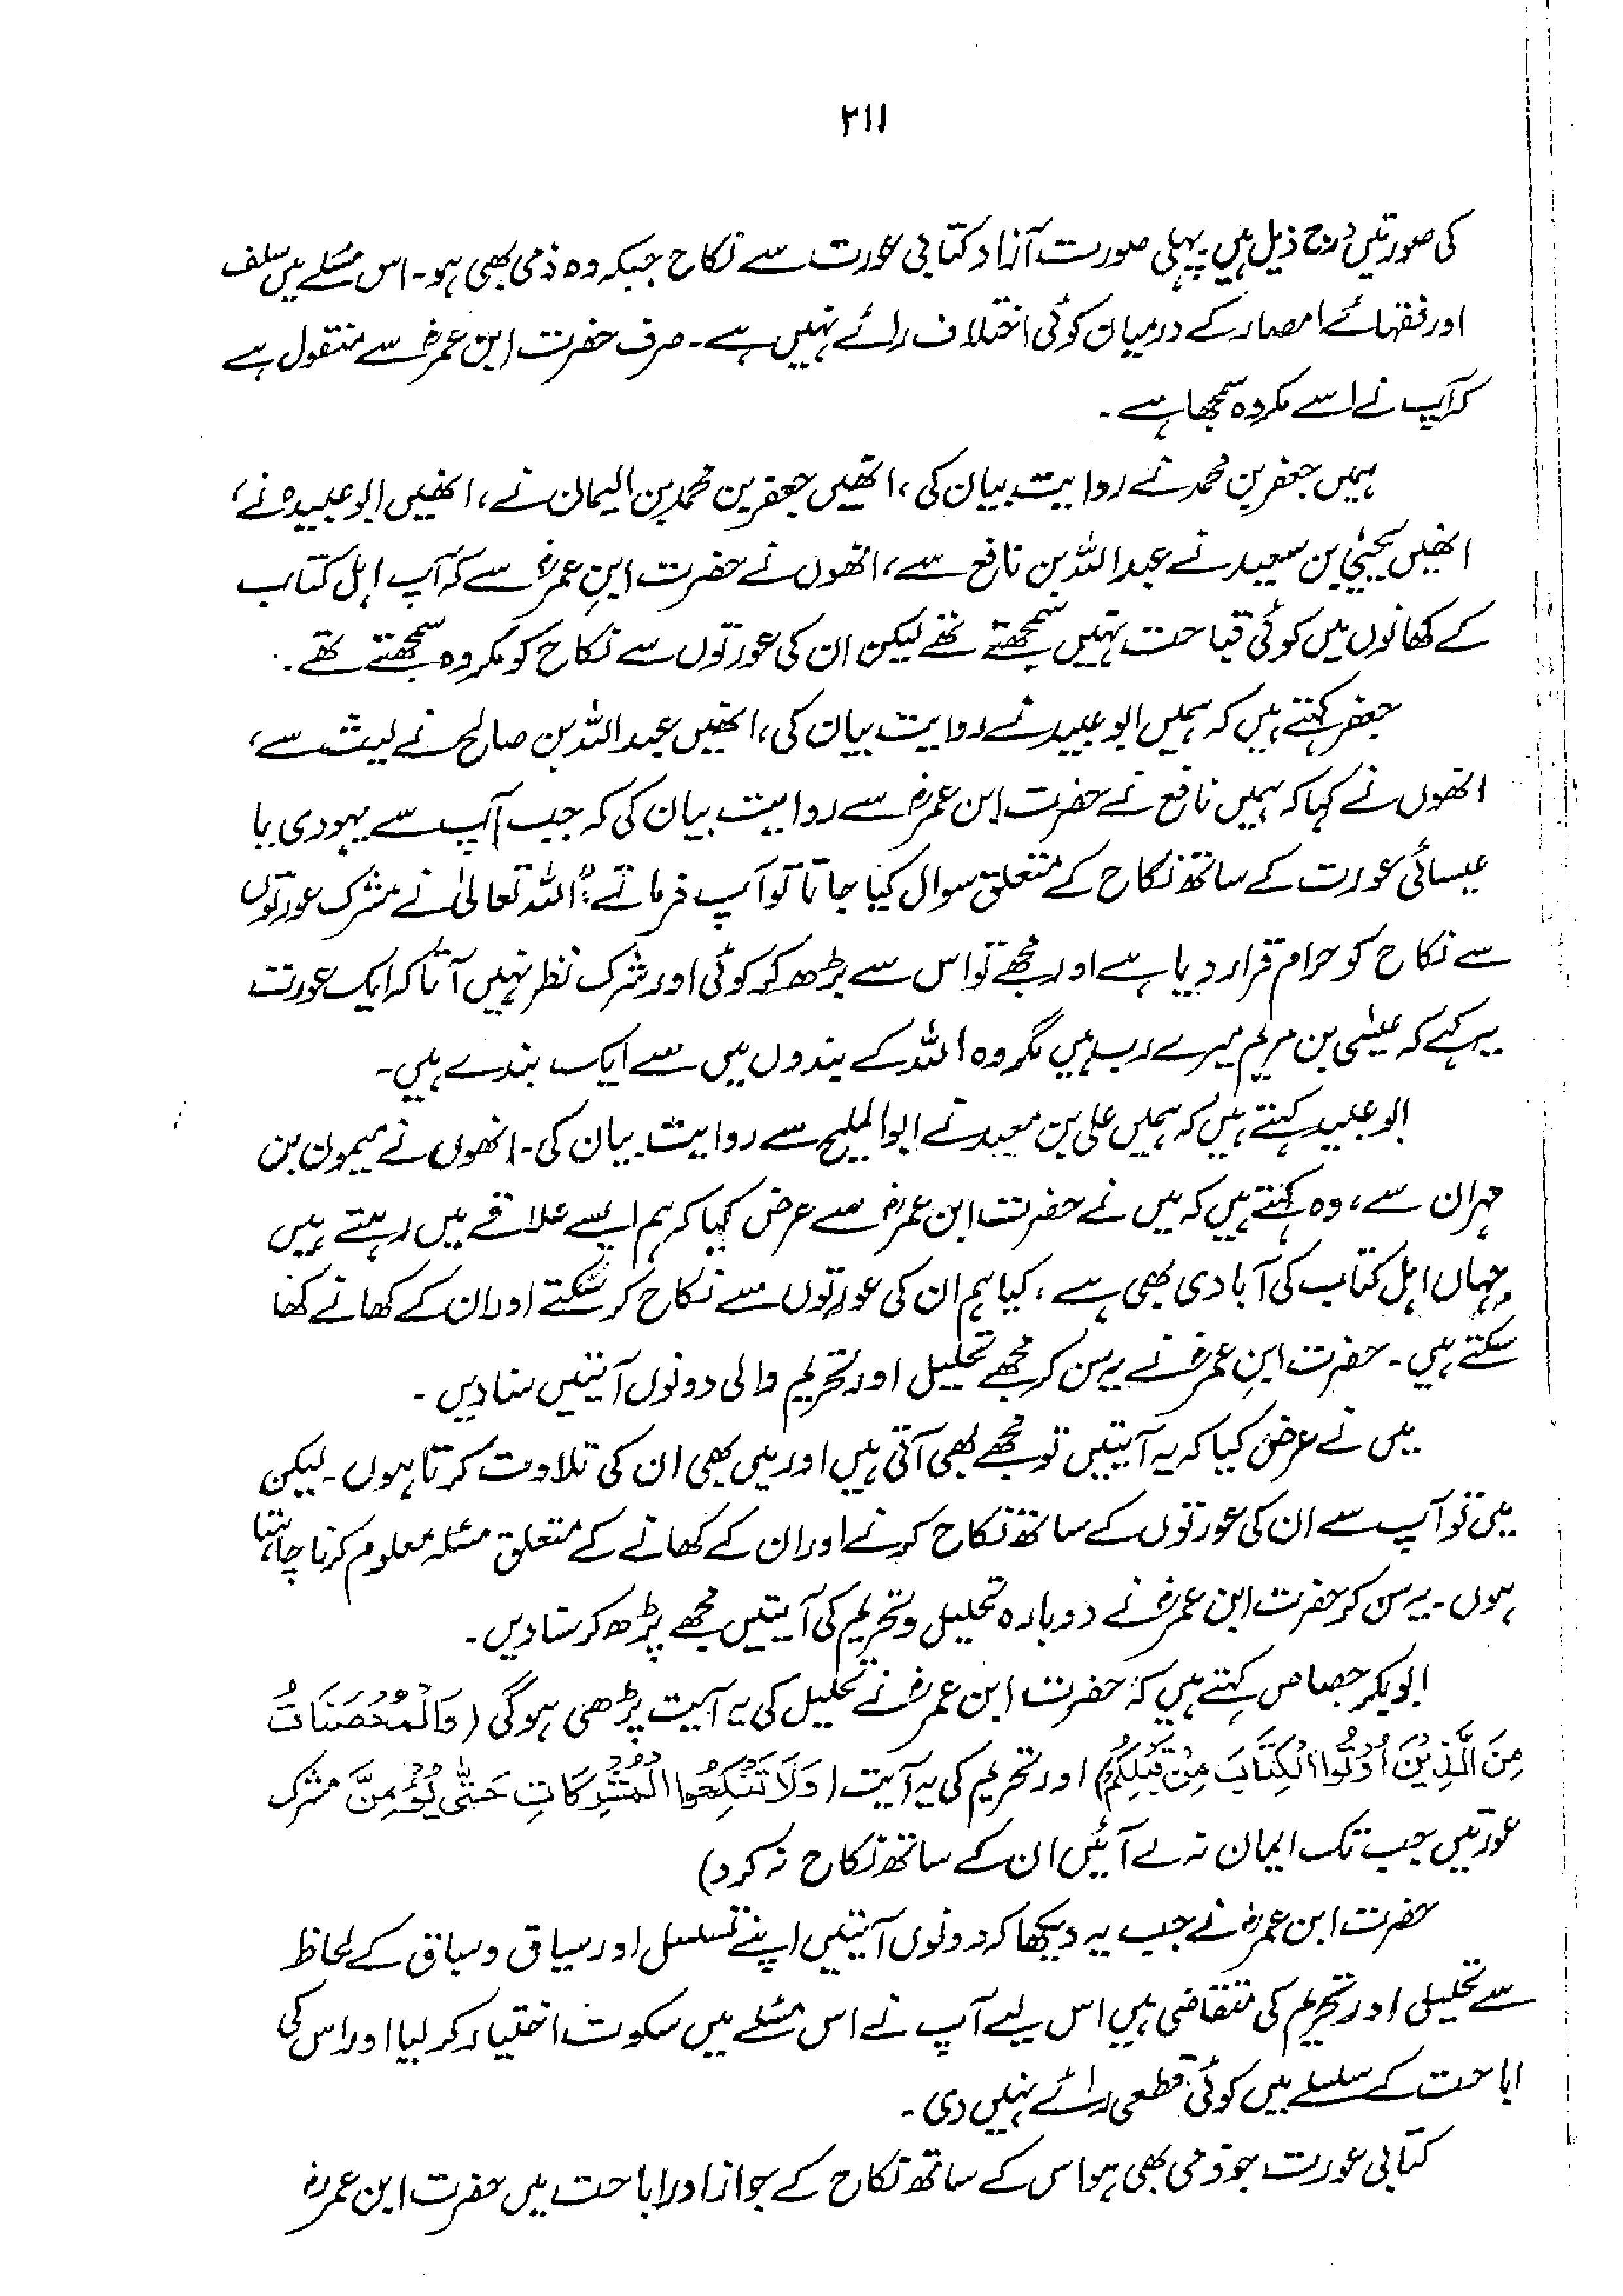 ۲۱۱
کی صورتیں درج ذیل ہیں پہلی صورت آزاد کتابی عورت سے نکاح جبکہ وہ ذمی بھی ہو۔ اس مسئلے میں سلف
اور فقہائے امصار کے درمیان کوئی اختلاف رائے نہیں ہے۔ صرف حضرت ابن عمرؓ سے منقول ہے
کہ آپ نے اسے مکروہ سمجھا ہے۔
ہمیں جعفر بن محمد نے روایت بیان کی، انھیں جعفر بن محمد بن الیمان نے، انھیں ابو عبیدہ نے،
انھیں یحییٰ بن سعید نے عبداللہ بن نافع سے، انھوں نے حضرت ابنِ عمرؓ سے کہ آپ اہل کتاب
کے کھانوں میں کوئی قباحت نہیں سمجھتے تھے لیکن ان کی عورتوں سے نکاح کو مکروہ سمجھتے تھے۔
جعفر کہتے ہیں کہ ہمیں ابو عبید نے روایت بیان کی، انھیں عبداللہ بن صالح نے لیث سے،
انھوں نے کہا کہ ہمیں نافع نے حضرت ابن عمرؓ سے روایت بیان کی کہ جب آپ سے یہودی یا
عیسائی عورت کے ساتھ نکاح کے متعلق سوال کیا جاتا تو آپ فرماتے: "اللہ تعالیٰ نے مشرک عورتوں
سے نکاح کو حرام قرار دیا ہے اور مجھے تو اس سے بڑھ کر کوئی اور شرک نظر نہیں آتا کہ ایک عورت
یہ کہے کہ عیسٰی بن مریم میرے رب ہیں مگر وہ اللہ کے بندوں میں سے ایک بندے ہیں۔
ابو عبید کہتے ہیں کہ ہمیں علی بن معبد نے ابوالملیح سے روایت بیان کی۔ انھوں نے میمون بن
مہران سے، وہ کہتے ہیں کہ میں نے حضرت ابن عمرؓ سے عرض کیا کہ ہم ایسے علاقے میں رہتے ہیں
جہاں اہل کتاب کی آبادی بھی ہے، کیا ہم ان کی عورتوں سے نکاح کر سکتے اور ان کے کھانے کھا
سکتے ہیں۔ حضرت ابنِ عمرؓ نے یہ سن کر مجھے تحلیل اور تحریم والی دونوں آیتیں سنا دیں۔
میں نے عرض کیا کہ یہ آیتیں تو مجھے بھی آتی ہیں اور میں بھی ان کی تلاوت کرتا ہوں۔ لیکن
میں تو آپ سے ان کی عورتوں کے ساتھ نکاح کرنے اور ان کے کھانے کے متعلق مسئلہ معلوم کرنا چاہتا
ہوں۔ یہ سن کر حضرت ابن عمرؓ نے دوبارہ تحلیل و تحریم کی آیتیں مجھے پڑھ کر سنا دیں۔
ابو بکر جصاص کہتے ہیں کہ حضرت ابن عمرؓ نے تحلیل کی یہ آیت پڑھی ہوگی (وَالْمُحْصَنَاتُ
مِنَ الَّذِیْنَ اُوْتُوا الْکِتَابَ مِنْ قَبْلِکُمْ) اور تحریم کی یہ آیت (وَلَا تَنْکِحُوا الْمُشْرِکَاتِ حَتّٰی یُؤْمِنَّ مشرک
عورتیں جب تک ایمان نہ لے آئیں ان کے ساتھ نکاح نہ کرو)
حضرت ابن عمرؓ نے جب یہ دیکھا کہ دونوں آیتیں اپنے تسلسل اور سیاق و سباق کے لحاظ
سے تحلیل اور تحریم کی متقاضی ہیں اس لیے آپ نے اس مسئلے میں سکوت اختیار کر لیا اور اس کی
اباحت کے سلسلے میں کوئی قطعی رائے نہیں دی۔
کتابی عورت جو ذمی بھی ہو اس کے ساتھ نکاح کے جواز اور اباحت میں حضرت ابن عمرؓ